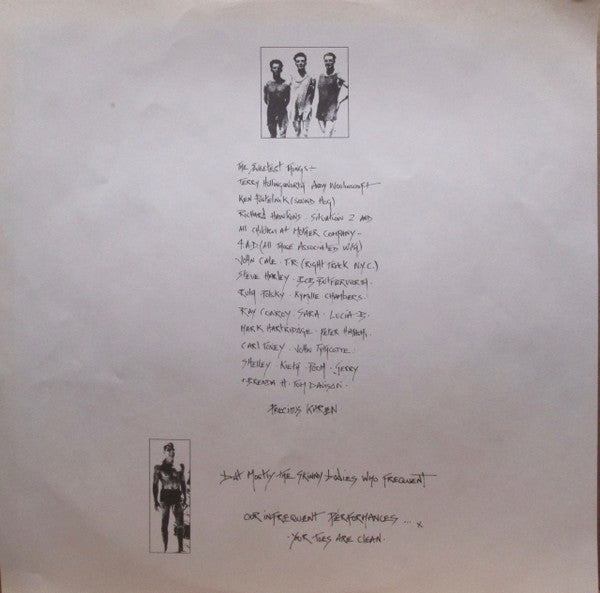 The Sweetest Things-
Terry Hollingworth Andy Woolliscroft
Ken (Sound Hog)
Richard Hawkins · Situation 2 and
All children at Mother Company -
4.A.D (All those associated w/it)
John Cale · T.R. (Right Track N.Y.C.)
Steve Harley · Bob Butterworth ·
Ruth Polsky · Kymlie Chambers ·
Ray Conroy · Sara · Lucia B.
Mark Hartridge · Peter
Carl · John
Shelley · Pooh · Gerry
· Brenda H · Tom Dawson ·
Precious Karen
but Mostly the skinny bodies who frequent
our infrequent performances ... x
· Your toes are clean ·